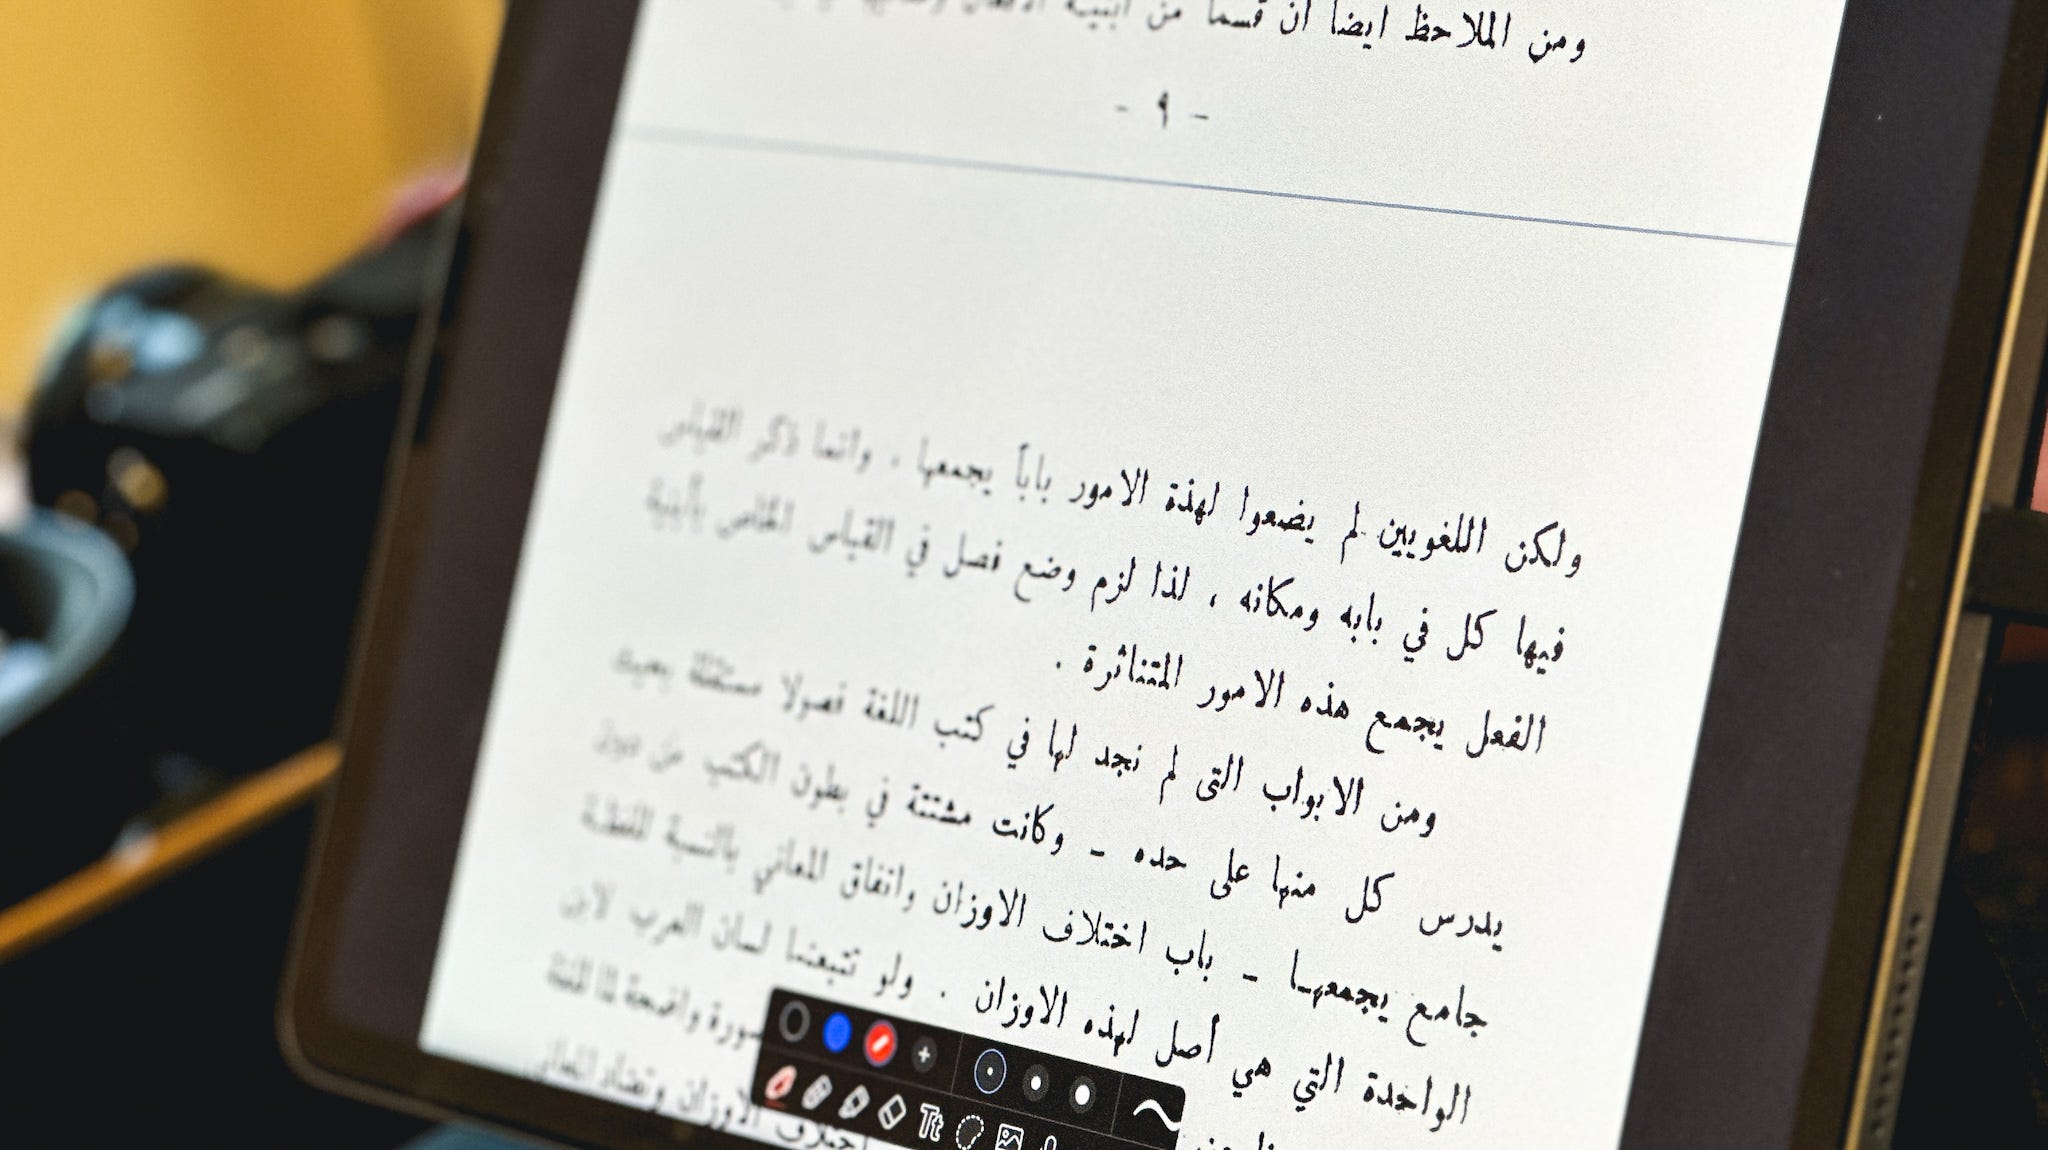 ومن الملاحظ ايضا ان قسما من ابنية الافعال
- ٩ -
ولكن اللغويين لم يضعوا لهذة الامور باباً يجمعها . وانما ذكر القياس
فيها كل في بابه ومكانه ، لذا لزم وضع فصل في القياس الخاص بأبنية
الفعل يجمع هذه الامور المتناثرة .
ومن الابواب التى لم نجد لها في كتب اللغة فصولا مستقلة بحيث
يدرس كل منها على حده ـ وكانت مشتتة في بطون الكتب من دون
جامع يجمعهـا ـ باب اختلاف الاوزان واتفاق المعاني بالنسبة للفظـة
الواحدة التي هي أصل لهذه الاوزان . ولو تتبعنـا لسان العرب لابن
صورة واضحة لما للغة
اختلاف الاوزان وتضاد المعاني
Tt